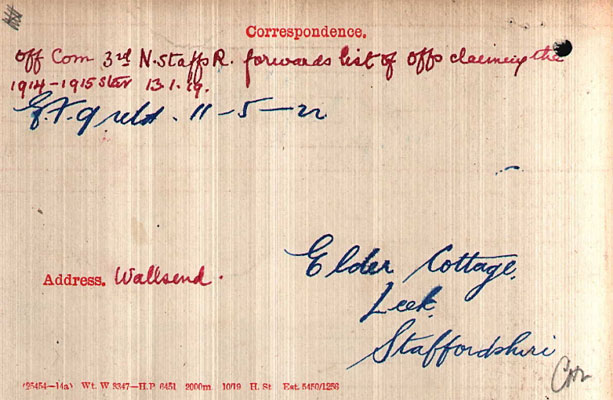 Correspondence.
Off Com 3rd N. Staffs R. forwards list of Offs claiming the
1914-1915 Star 13.1.19.
11-5-22
Address. Wallsend.
Elder Cottage,
Leek,
Staffordshire
(25454-14a) Wt. W 3347-H.P. 6451 2000m 10/19 H. St Est. 5450/1256